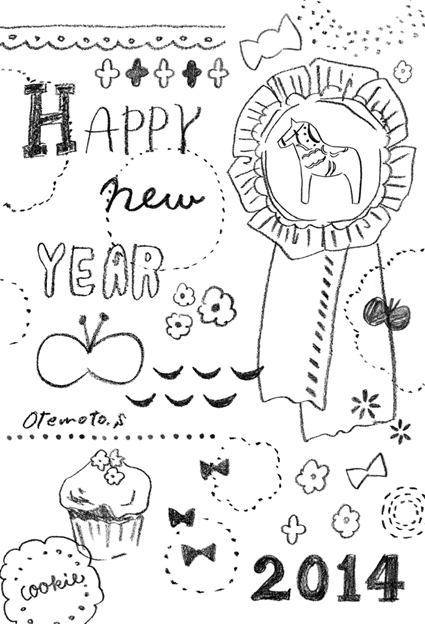 HAPPY
new
YEAR
Otemoto.s
cookie
2014